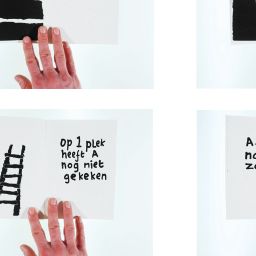 op 1 plek
heeft A
nog niet
gekeken
A